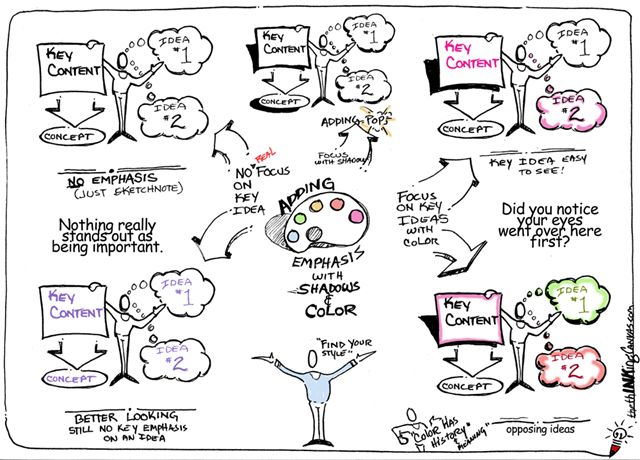 KEY
CONTENT
IDEA
#1
IDEA
#2
CONCEPT
NO EMPHASIS
(JUST SKETCHNOTE)
Nothing really
stands out as
being important.
KEY
CONTENT
IDEA
#1
IDEA
#2
CONCEPT
ADDING POPS
FOCUS
WITH SHADOW
KEY
CONTENT
IDEA
#1
IDEA
#2
CONCEPT
KEY IDEA EASY
TO SEE!
Did you notice
your eyes
went over here
first?
REAL
NO FOCUS
ON
KEY
IDEA
ADDING
EMPHASIS
WITH
SHADOWS
&
COLOR
FOCUS
ON KEY
IDEAS
WITH
COLOR
KEY
CONTENT
IDEA
#1
IDEA
#2
CONCEPT
BETTER LOOKING
STILL NO KEY EMPHASIS
ON AN IDEA
"FIND YOUR
STYLE"
KEY
CONTENT
IDEA
#1
IDEA
#2
CONCEPT
"COLOR HAS
HISTORY"
MEANING"
opposing ideas